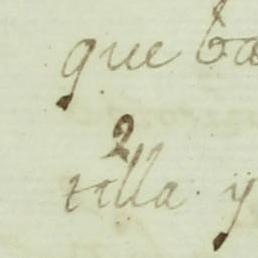 que ba
2
tilla y